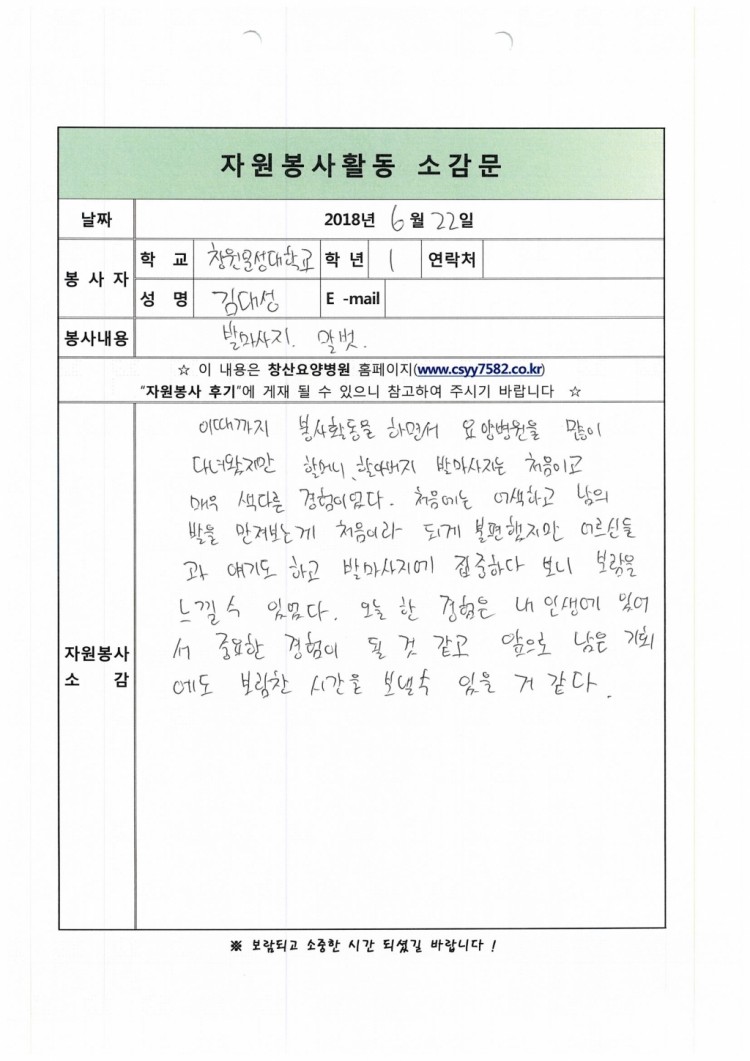 자원봉사활동 소감문
날짜 2018년 6월 22일
봉사자 학교 창원문성대학교 학년 1 연락처
성명 김대성 E -mail
봉사내용 발마사지. 말벗.
☆ 이 내용은 창산요양병원 홈페이지(www.csyy7582.co.kr)
“자원봉사 후기”에 게재 될 수 있으니 참고하여 주시기 바랍니다 ☆
자원봉사
소 감
이때까지 봉사활동을 하면서 요양병원을 많이
다녀왔지만 할머니, 할아버지 발마사지는 처음이고
매우 색다른 경험이었다. 처음에는 어색하고 남의
발을 만져보는게 처음이라 되게 불편했지만 어르신들
과 얘기도 하고 발마사지에 집중하다 보니 보람을
느낄 수 있었다. 오늘 한 경험은 내 인생에 있어
서 중요한 경험이 될 것 같고 앞으로 남은 기회
에도 보람찬 시간을 보낼수 있을 거 같다.
※ 보람되고 소중한 시간 되셨길 바랍니다 !